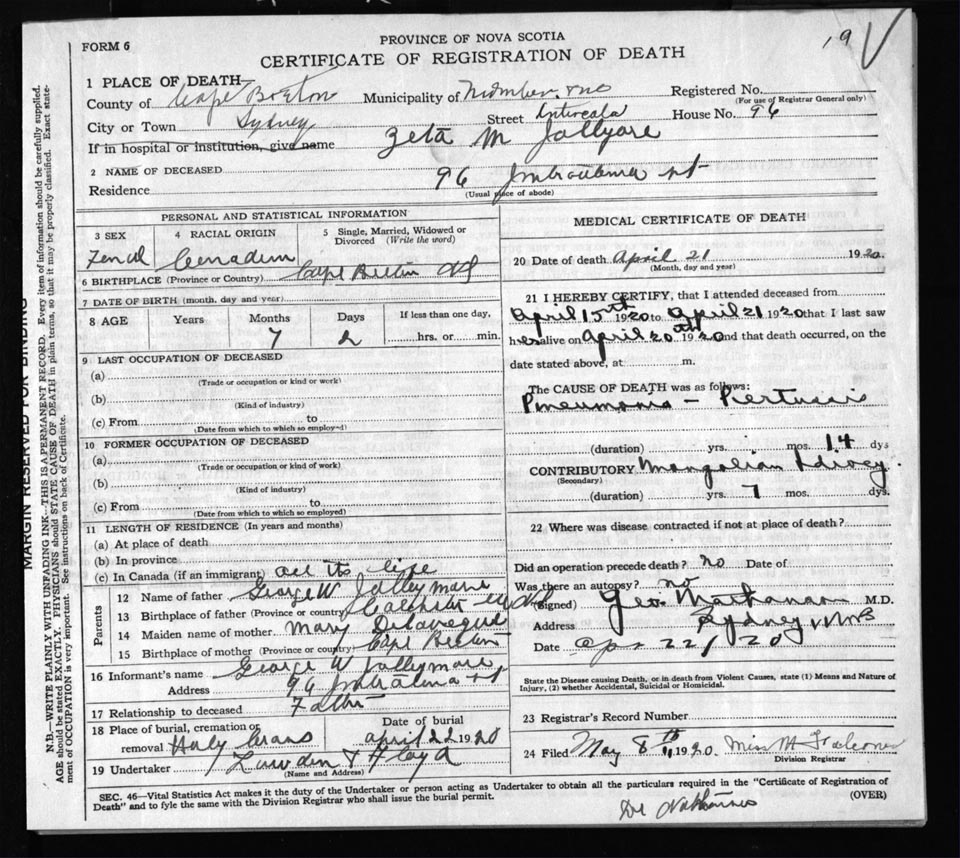 PROVINCE OF NOVA SCOTIA
FORM 6
CERTIFICATE OF REGISTRATION OF DEATH
19 V
1 PLACE OF DEATH
County of Cape Breton Municipality of Number one Registered No.
(For use of Registrar General only)
City or Town Sydney Street House No. 96
If in hospital or institution, give name
2 NAME OF DECEASED Zeta M
Residence 96 st
(Usual place of abode)
MARGIN RESERVED FOR BINDING
N.B.—WRITE PLAINLY WITH UNFADING INK—THIS IS A PERMANENT RECORD. Every item of information should be carefully supplied. AGE should be stated EXACTLY. PHYSICIANS should STATE CAUSE OF DEATH in plain terms, so that it may be properly classified. Exact statement of OCCUPATION is very important. See instructions on back of Certificate.
PERSONAL AND STATISTICAL INFORMATION
3 SEX
4 RACIAL ORIGIN
5 Single, Married, Widowed or Divorced (Write the word)
6 BIRTHPLACE (Province or Country)
7 DATE OF BIRTH (month, day and year)
8 AGE Years Months Days If less than one day,
7 2 hrs. or min.
9 LAST OCCUPATION OF DECEASED
(a)
(Trade or occupation or kind or work)
(b)
(Kind of industry)
(c) From to
(Date from which to which so employed)
10 FORMER OCCUPATION OF DECEASED
(a)
(Trade or occupation or kind of work)
(b)
(Kind of industry)
(c) From to
(Date from which to which so employed)
11 LENGTH OF RESIDENCE (In years and months)
(a) At place of death
(b) In province
(c) In Canada (if an immigrant) all its life
Parents
12 Name of father George W
13 Birthplace of father (Province or country)
14 Maiden name of mother Mary
15 Birthplace of mother (Province or country) Cape Breton
16 Informant's name George W Jollymore
Address 96 st
17 Relationship to deceased Father
18 Place of burial, cremation or removal Holy Cross Date of burial april 22 1920
19 Undertaker Lowden & Floyd
(Name and Address)
MEDICAL CERTIFICATE OF DEATH
20 Date of death April 21 1920
(Month, day and year)
21 I HEREBY CERTIFY, that I attended deceased from
April 15th 1920 to April 21 1920 that I last saw
her alive on April 20th 1920 and that death occurred, on the
date stated above, at m.
The CAUSE OF DEATH was as follows:
Pneumonia - Pertussis
(duration) yrs. mos. 14 dys
CONTRIBUTORY Mongolian Idiocy.
(Secondary)
(duration) yrs. 7 mos. dys.
22 Where was disease contracted if not at place of death?
Did an operation precede death? no Date of
Was there an autopsy? no
(Signed) Geo M.D.
Address Sydney
Date Apr 22/20
State the Disease causing Death, or in death from Violent Causes, state (1) Means and Nature of Injury, (2) whether Accidental, Suicidal or Homicidal.
23 Registrar's Record Number
24 Filed May 8th, 1920. Miss M
Division Registrar
SEC. 46—Vital Statistics Act makes it the duty of the Undertaker or person acting as Undertaker to obtain all the particulars required in the "Certificate of Registration of
Death" and to fyle the same with the Division Registrar who shall issue the burial permit. (OVER)
Dr